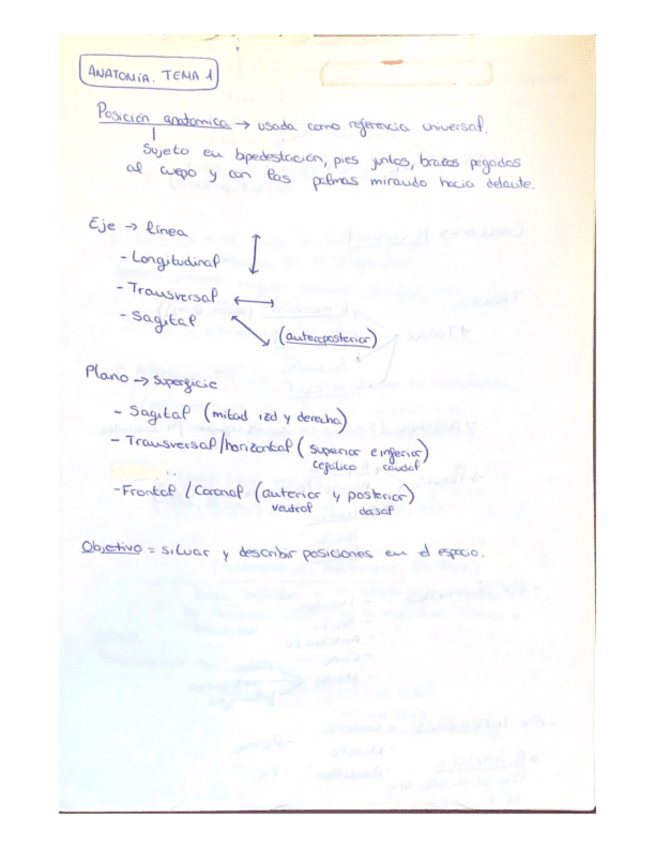 ANATOMÍA. TEMA 1
Posición anatomica → usada como referencia universal.
Sujeto en bipedestación, pies juntos, brazos pegados
al cuerpo y con las palmas mirando hacia delante.
Eje → línea
- Longitudinal
- Transversal
- Sagital (anteroposterior)
Plano → superficie
- Sagital (mitad izd y derecha)
- Transversal/horizontal (superior e inferior)
cefalico caudal
- Frontal / Coronal (anterior y posterior)
ventral dorsal
Objetivo = situar y describir posiciones en el espacio.